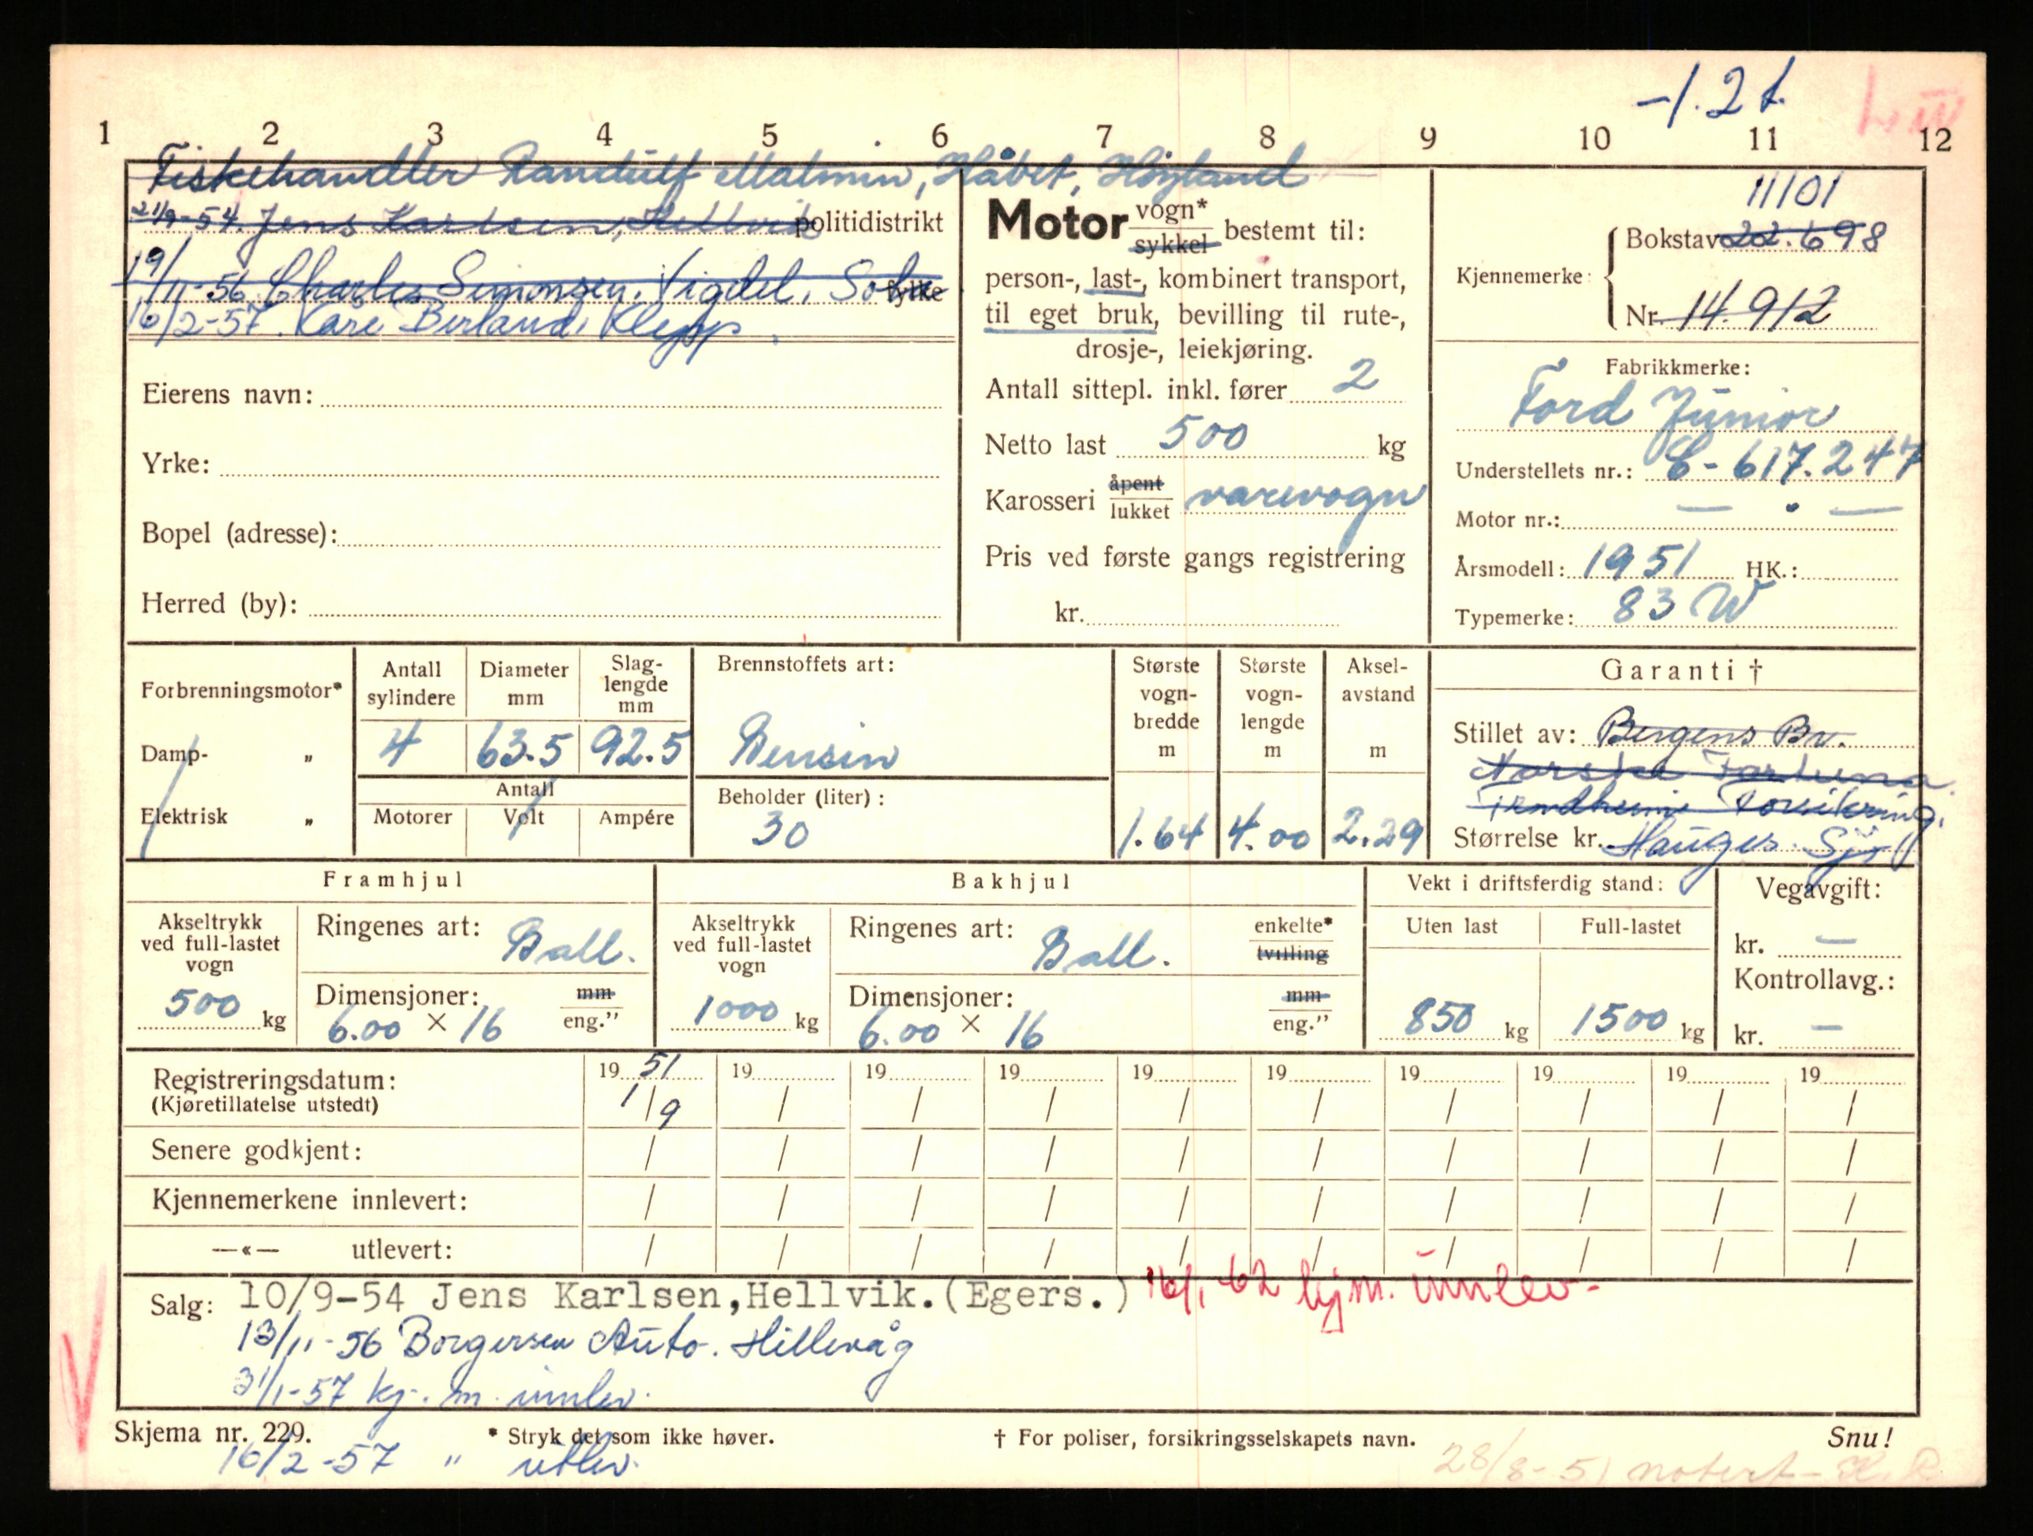 -1.2 t.
1 2 3 4 5 6 7 8 9 10 11 12
Fiskehandler Randulf Malmin, Håbet, Høyland
21/9-54. Jens Karlsen, Hellvik politidistrikt
19/11-56 Charles Simonsen, Vigdel, Sola fylke
16/2-57. Kåre Berland, Klepp.
Eierens navn:
Yrke:
Bopel (adresse):
Herred (by):
Motor vogn*
sykkel bestemt til:
person-, last-, kombinert transport,
til eget bruk, bevilling til rute-,
drosje-, leiekjøring.
Antall sittepl. inkl. fører 2
Netto last 500 kg
Karosseri åpent
lukket varevogn
Pris ved første gangs registrering
kr.
11101
Kjennemerke: Bokstav 22.698
Nr. 14.912
Fabrikkmerke:
Ford Junior
Understellets nr.: C-617.247
Motor nr.: — • —
Årsmodell: 1951 HK.:
Typemerke: 83 W
Forbrenningsmotor*
Damp- „
Elektrisk „
Antall sylindere 4
Diameter mm 63.5
Slag-lengde mm 92.5
Antall
Motorer Volt Ampére
Brennstoffets art:
Bensin
Beholder (liter):
30
Største vogn-bredde m 1.64
Største vogn-lengde m 4.00
Aksel-avstand m 2.29
Garanti †
Stillet av: Bergens Br.
Norske Fortuna
Trondheim Forsikring.
Størrelse kr. Hauges. Sjø
Framhjul
Akseltrykk
ved full-lastet
vogn
500 kg
Ringenes art: Ball.
Dimensjoner: mm
6.00 × 16 eng.”
Bakhjul
Akseltrykk
ved full-lastet
vogn
1000 kg
Ringenes art: Ball. enkelte*
tvilling
Dimensjoner: mm
6.00 × 16 eng.”
Vekt i driftsferdig stand:
Uten last Full-lastet
850 kg 1500 kg
Vegavgift:
kr. —
Kontrollavg.:
kr. —
Registreringsdatum: 19 51 19 19 19 19 19 19 19 19 19
(Kjøretillatelse utstedt) 1/9 / / / / / / / / /
Senere godkjent: / / / / / / / / / /
Kjennemerkene innlevert: / / / / / / / / / /
—«— utlevert: / / / / / / / / / /
Salg: 10/9-54 Jens Karlsen,Hellvik.(Egers.) 16/1-62 kjm. innlev-
13/11-56 Borgersen Auto. Hillevåg
31/1-57 kj. m. innlev.
Skjema nr. 229. * Stryk det som ikke høver. † For poliser, forsikringsselskapets navn. Snu!
16/2-57 " utlev.
28/8-51 notert-